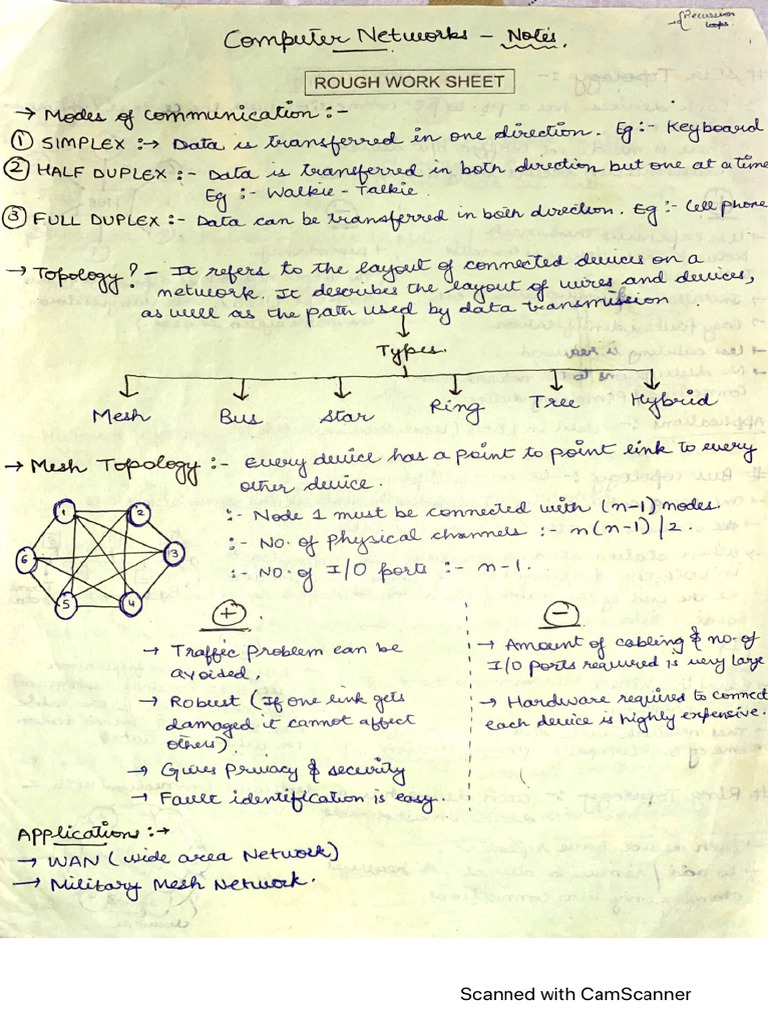 → Recursion
loops.
Computer Networks – Notes.
ROUGH WORK SHEET
→ Modes of communication :-
① SIMPLEX :→ Data is transferred in one direction. Eg :- Keyboard
② HALF DUPLEX :- Data is transferred in both direction but one at a time
Eg :- Walkie - Talkie.
③ FULL DUPLEX :- Data can be transferred in both direction. Eg :- Cell phone
→ Topology? – It refers to the layout of connected devices on a
network. It describes the layout of wires and devices,
as well as the path used by data transmission.
Types.
Mesh Bus Star Ring Tree Hybrid
→ Mesh Topology :- Every device has a point to point link to every
other device.
:- Node 1 must be connected with (n-1) nodes.
:- No. of physical channels :- n(n-1)/2.
:- NO. of I/O ports :- n-1.
1 2
6 3
5 4
+
→ Traffic problem can be
avoided.
→ Robust (If one link gets
damaged it cannot affect
others).
→ Gives privacy & security
→ Fault identification is easy.
–
→ Amount of cabling & no. of
I/O ports required is very large
→ Hardware required to connect
each device is highly expensive.
Applications :→
→ WAN (wide area Network)
→ Military Mesh Network.
Scanned with CamScanner